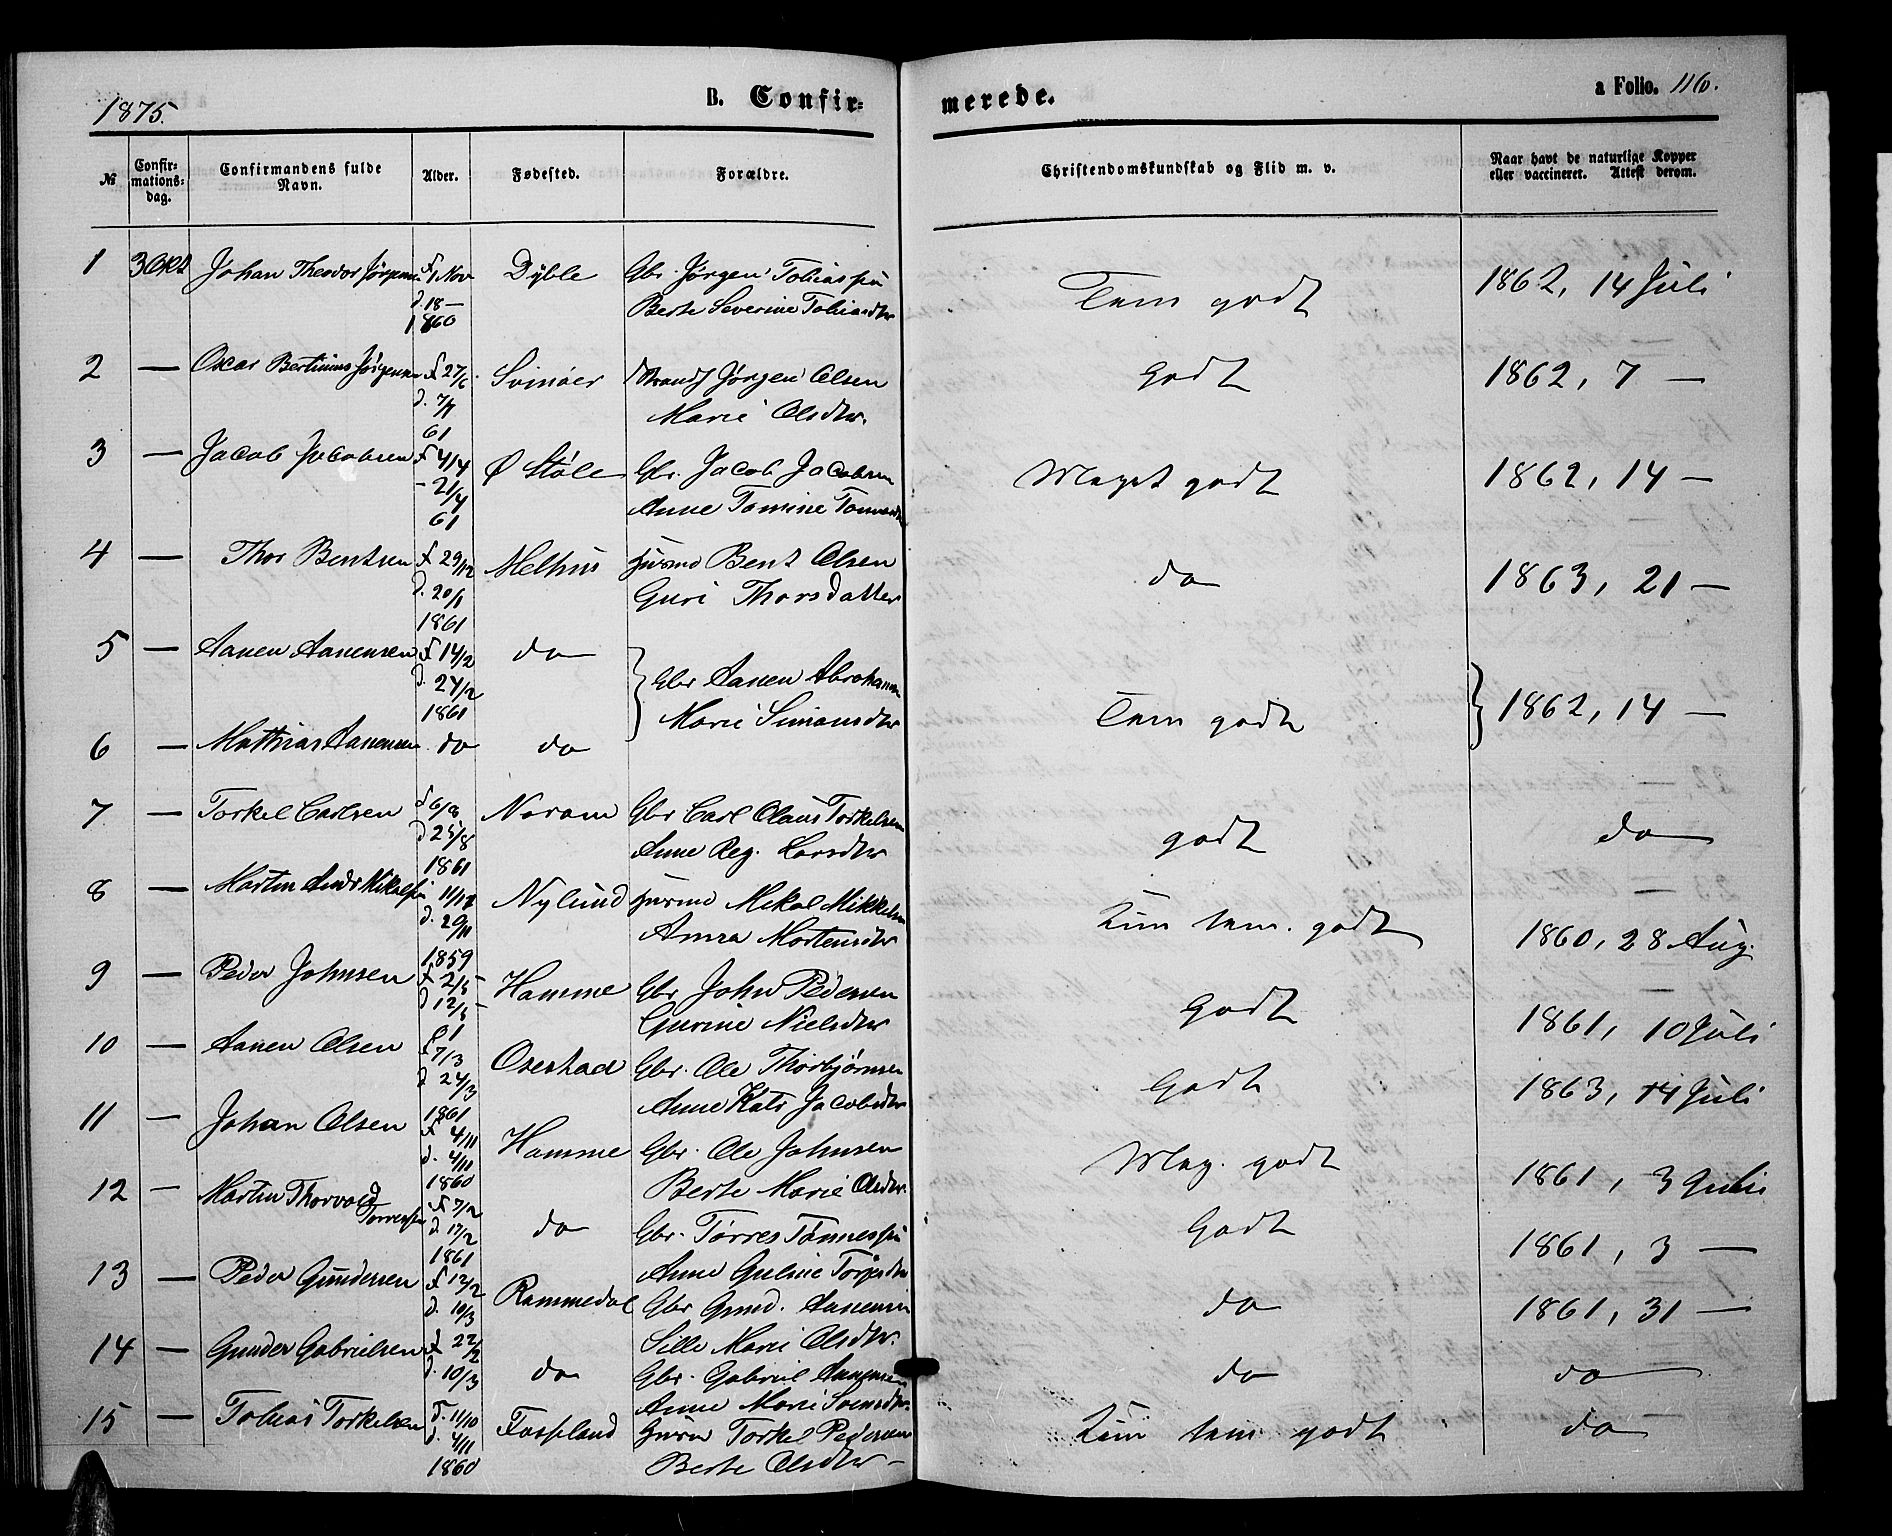 1875.
B. Confir=
merede.
a Folio. 116.
№
Confir=
mations=
dag.
Confirmandens fulde
Navn.
Alder.
Fødested.
Forældre.
Christendomskundskab og Flid m. v.
Naar havt de naturlige Kopper
eller vaccineret. Attest derom.
1 3 Okt Johan Theodor Jørgensen f. 1 Nov Dyble Gbr. Jørgen Tobiassen
d. 18 — Berte Severine Tobiasdtr
1860
Tem godt 1862, 14 Juli
2 — Oscar Bertinius Jørgensen f 27/6 Svinøer Strands Jørgen Olsen
d. 7/7 Marie Olsdtr.
61
Godt 1862, 7 —
3 — Jacob Jacobsen f 4/4 Ø Støle Gbr. Jacob Jacobsen
- 21/4 Anne Tomine
61
Meget godt 1862, 14 —
4 — Thor Bentsen f 29/12 Melhus Husmd Bent Olsen
d. 20/1 Guri Thorsdatter
1861
do 1863, 21 —
5 — Aanen Aanensen f 14/2 do Gbr Aanen Abrahamsen
d. 24/2 Marie Simonsdtr
1861
6 — Mathias Aanensen do do
Tem godt 1862, 14 —
7 — Torkel Carlsen f 6/8 Noram Gbr Carl Claus Torkelsen
d 25/8 Anne Reg. Larsdtr
1861
godt do
8 — Martin Andr Mikalsen 11/12 Nylund Husmd Mekal Mikkelsen
d. 20/11 Anna Mortensdtr
1859
Kun tem. godt 1860, 28 Aug.
9 — Peder Johnsen f 2/5 Homme Gbr John Pedersen
d 12/5 Gurine Nielsdtr
61
Godt 1861, 10 Juli
10 — Aanen Olsen f 7/3 Osestad Gbr. Ole Thorbjørnsen
d 24/3 Anne Kats Jacobsdtr
1861
Godt 1863, 14 Juli
11 — Johan Olsen f 4/11 Homme Gbr. Ole Johnsen
d. 4/11 Berte Marie Olsdtr.
1860
Meg. godt 1861, 3 Juli
12 — Martin Thorvald
Tørressen f 7/2 do Gbr. Tørres Tønnessen
d. 17/2 Anne Guline
1861
Godt 1861, 3 —
13 — Peder Gundersen f 12/2 Rammedal Gbr Gund. Aanensen
d. 10/3 Sille Marie Olsdtr.
do 1861, 31 —
14 — Gunder Gabrielsen f 22/2 do Gbr. Gabriel Aanensen
d. 10/3 Anne Marie Svensdtr.
do do
15 — Tobias Torkelsen f. 11/10 Fosseland Husm Torkel Pedersen
d. 4/11 Berte Olsdtr —
1860
Kun tem godt do